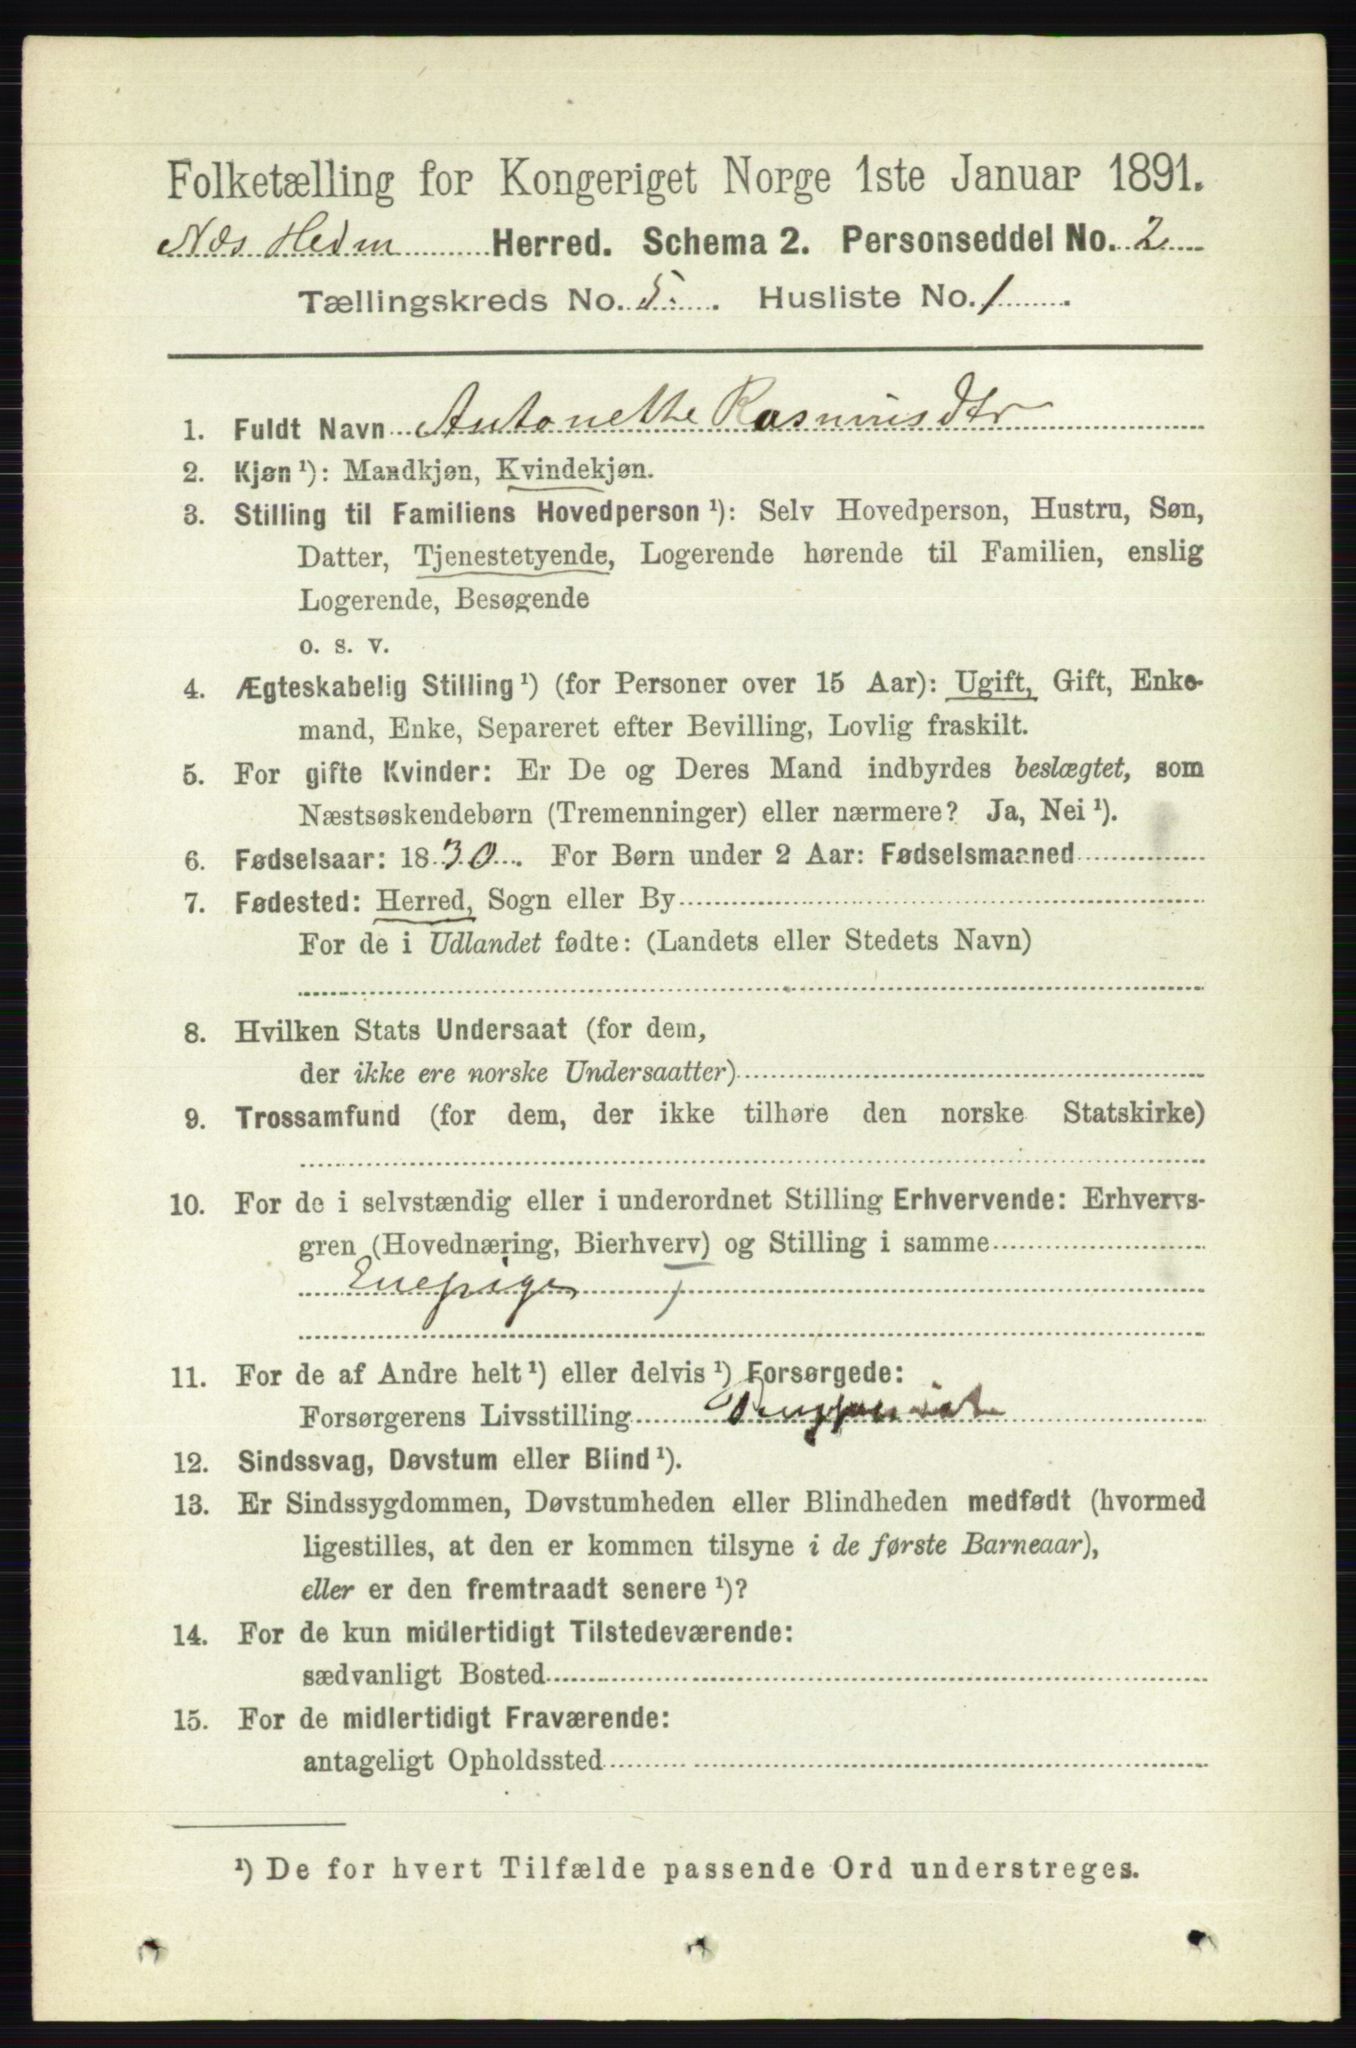 Folketælling for Kongeriget Norge 1ste Januar 1891.
Næs Hedm Herred. Schema 2. Personseddel No. 2
Tællingskreds No. 5. Husliste No. 1
1. Fuldt Navn Antonette Rasmusdtr
2. Kjøn ¹): Mandkjøn, Kvindekjøn.
3. Stilling til Familiens Hovedperson ¹): Selv Hovedperson, Hustru, Søn,
Datter, Tjenestetyende, Logerende hørende til Familien, enslig
Logerende, Besøgende
o. s. v.
4. Ægteskabelig Stilling ¹) (for Personer over 15 Aar): Ugift, Gift, Enke-
mand, Enke, Separeret efter Bevilling, Lovlig fraskilt.
5. For gifte Kvinder: Er De og Deres Mand indbyrdes beslægtet, som
Næstsøskendebørn (Tremenninger) eller nærmere? Ja, Nei ¹).
6. Fødselsaar: 1830. For Børn under 2 Aar: Fødselsmaaned
7. Fødested: Herred, Sogn eller By
For de i Udlandet fødte: (Landets eller Stedets Navn)
8. Hvilken Stats Undersaat (for dem,
der ikke ere norske Undersaatter)
9. Trossamfund (for dem, der ikke tilhøre den norske Statskirke)
10. For de i selvstændig eller i underordnet Stilling Erhvervende: Erhvervs-
gren (Hovednæring, Bierhverv) og Stilling i samme
Enepige
11. For de af Andre helt ¹) eller delvis ¹) Forsørgede:
Forsørgerens Livsstilling
12. Sindssvag, Døvstum eller Blind ¹).
13. Er Sindssygdommen, Døvstumheden eller Blindheden medfødt (hvormed
ligestilles, at den er kommen tilsyne i de første Barneaar),
eller er den fremtraadt senere ¹)?
14. For de kun midlertidigt Tilstedeværende:
sædvanligt Bosted
15. For de midlertidigt Fraværende:
antageligt Opholdssted
¹) De for hvert Tilfælde passende Ord understreges.